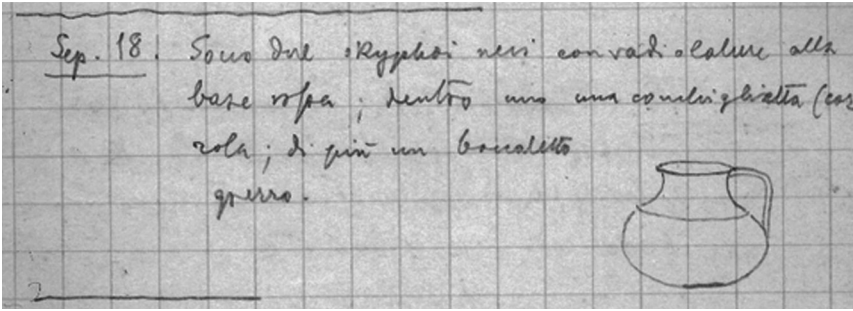 Sep. 18. Sono due skyphoi neri con radiolature alla
base rossa; dentro uno una conchiglietta (coz
zola; di più un boccaletto
grezzo.